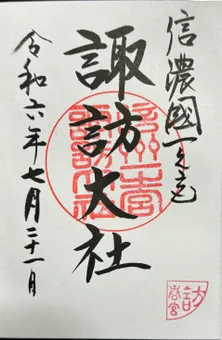 信濃國一之宮
諏訪大社
令和六年七月二十一日